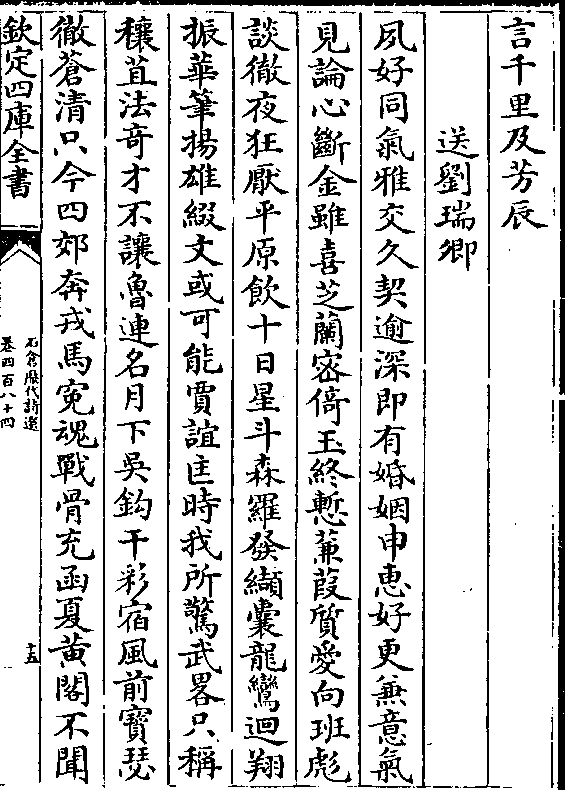 言千里及芳辰
送劉瑞卿
夙好同氣雅交久契逾深即有婚姻申恵好更兼意氣
見論心斷金雖喜芝蘭宻倚玉終慙蒹葭質愛向班彪
談徹夜狂厭平原飲十日星斗森羅發纈囊龍鸞迴翔
振華筆揚雄綴文或可能賈誼匡時我所驚武畧只稱
穰苴法竒才不讓魯連名月下吳鈎干彩宿風前寳瑟
徹蒼清只今四郊奔戎馬寃魂戰骨充函夏黄閣不聞
欽定四庫全書
石倉歴代詩選
卷四百八十四
十五